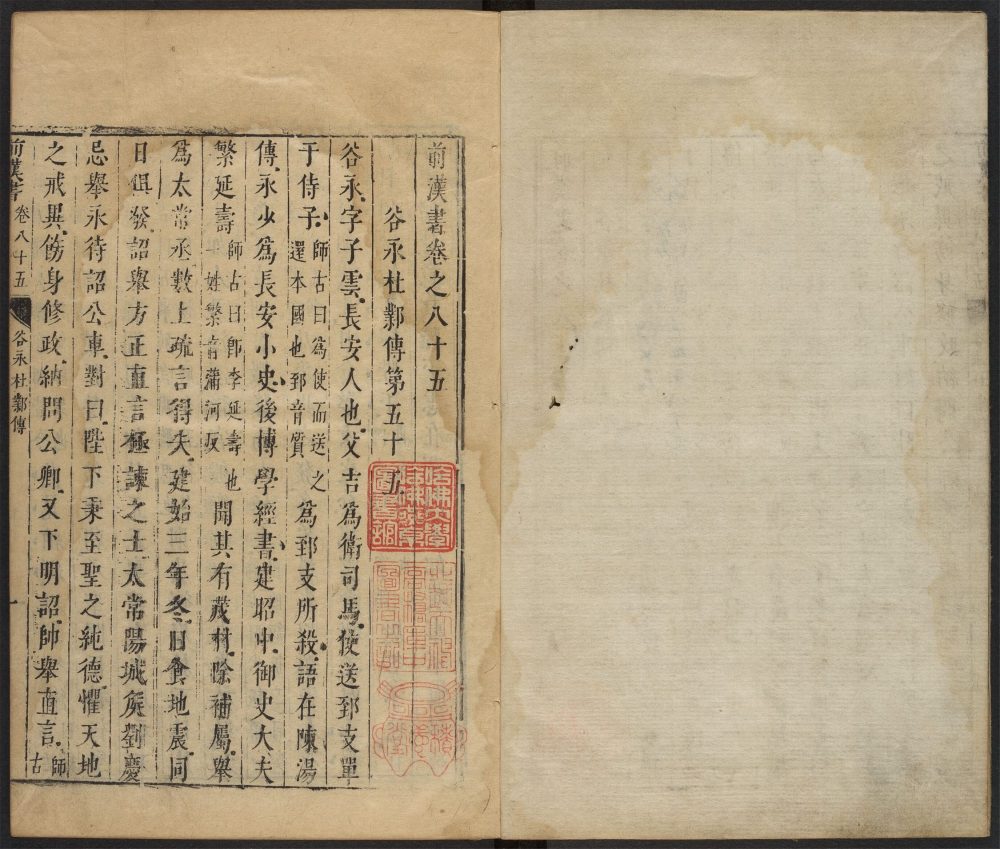 前漢書卷之八十五
谷永杜鄴傳第五十五
谷永字子雲長安人也父吉爲衛司馬使送郅支單
于侍子師古曰爲使而送之還本國也郅音質爲郅支所殺語在陳湯
傳永少爲長安小史後博學經書建昭中御史大夫
繁延壽師古曰卽李延壽也一姓繁音蒲河反聞其有茂材除補屬舉
爲太常丞數上疏言得失建始三年冬日食地震同
日俱發詔舉方正直言極諫之士太常陽城侯劉慶
忌舉永待詔公車對曰陛下秉至聖之純德懼天地
之戒異飭身修政納問公卿又下明詔帥舉直言師古
前漢書卷八十五 谷永杜鄴傳 一
哈佛大學哈佛燕京圖書館